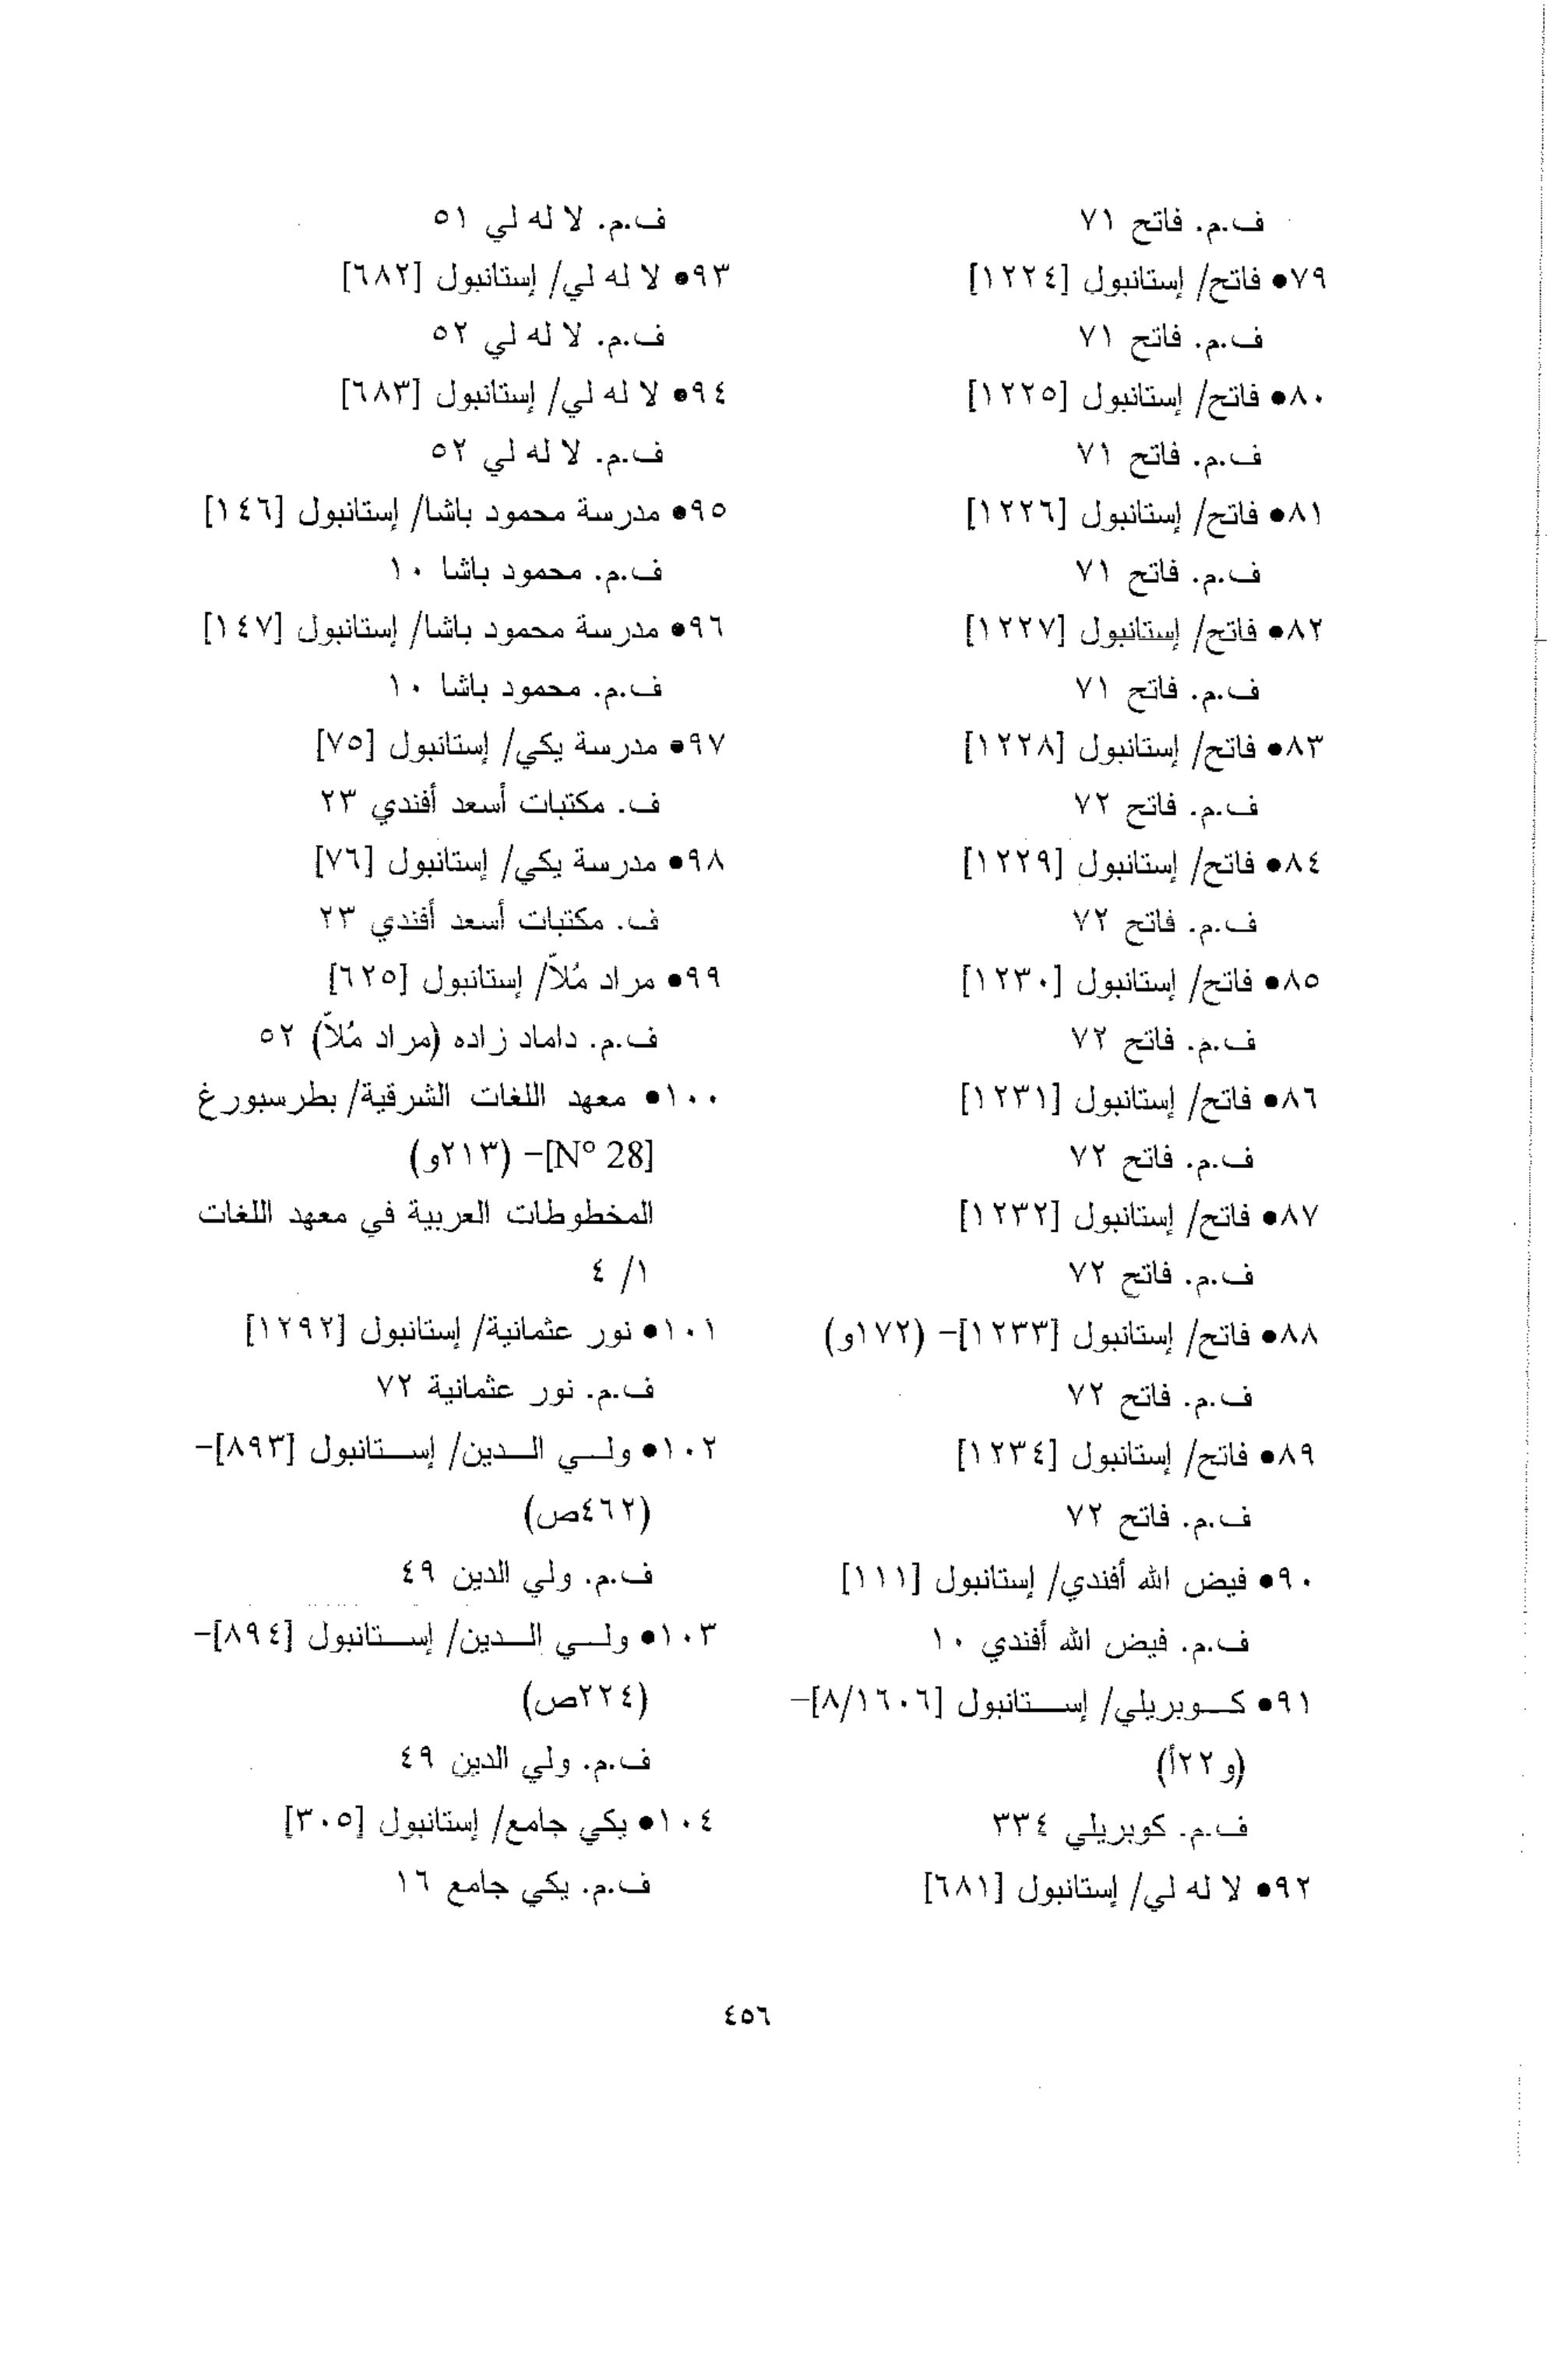 ف.م. فاتح ٧١
٧٩• فاتح/ إستانبول [١٢٢٤]
ف.م. فاتح ٧١
٨٠• فاتح/ إستانبول [١٢٢٥]
ف.م. فاتح ٧١
٨١• فاتح/ إستانبول [١٢٢٦]
ف.م. فاتح ٧١
٨٢• فاتح/ إستانبول [١٢٢٧]
ف.م. فاتح ٧١
٨٣• فاتح/ إستانبول [١٢٢٨]
ف.م. فاتح ٧٢
٨٤• فاتح/ إستانبول [١٢٢٩]
ف.م. فاتح ٧٢
٨٥• فاتح/ إستانبول [١٢٣٠]
ف.م. فاتح ٧٢
٨٦• فاتح/ إستانبول [١٢٣١]
ف.م. فاتح ٧٢
٨٧• فاتح/ إستانبول [١٢٣٢]
ف.م. فاتح ٧٢
٨٨• فاتح/ إستانبول [١٢٣٣]- (١٧٢و)
ف.م. فاتح ٧٢
٨٩• فاتح/ إستانبول [١٢٣٤]
ف.م. فاتح ٧٢
٩٠• فيض الله أفندي/ إستانبول [١١١]
ف.م. فيض الله أفندي ١٠
٩١• كـوبريلي/ إسـتانبول [٨/١٦٠٦]-
(و ٢٢أ)
ف.م. كوبريلي ٣٣٤
٩٢• لا له لي/ إستانبول [٦٨١]
ف.م. لا له لي ٥١
٩٣• لا له لي/ إستانبول [٦٨٢]
ف.م. لا له لي ٥٢
٩٤• لا له لي/ إستانبول [٦٨٣]
ف.م. لا له لي ٥٢
٩٥• مدرسة محمود باشا/ إستانبول [١٤٦]
ف.م. محمود باشا ١٠
٩٦• مدرسة محمود باشا/ إستانبول [١٤٧]
ف.م. محمود باشا ١٠
٩٧• مدرسة يكي/ إستانبول [٧٥]
ف. مكتبات أسعد أفندي ٢٣
٩٨• مدرسة يكي/ إستانبول [٧٦]
ف. مكتبات أسعد أفندي ٢٣
٩٩• مراد مُلاّ/ إستانبول [٦٢٥]
ف.م. داماد زاده (مراد مُلاّ) ٥٢
١٠٠• معهد اللغات الشرقية/ بطرسبورغ
[N° 28]- (٢١٣و)
المخطوطات العربية في معهد اللغات
١/ ٤
١٠١• نور عثمانية/ إستانبول [١٢٩٢]
ف.م. نور عثمانية ٧٢
١٠٢• ولـي الـدين/ إسـتانبول [٨٩٣]-
(٤٦٢ص)
ف.م. ولي الدين ٤٩
١٠٣• ولـي الـدين/ إسـتانبول [٨٩٤]-
(٢٢٤ص)
ف.م. ولي الدين ٤٩
١٠٤• يكي جامع/ إستانبول [٣٠٥]
ف.م. يكي جامع ١٦
٤٥٦